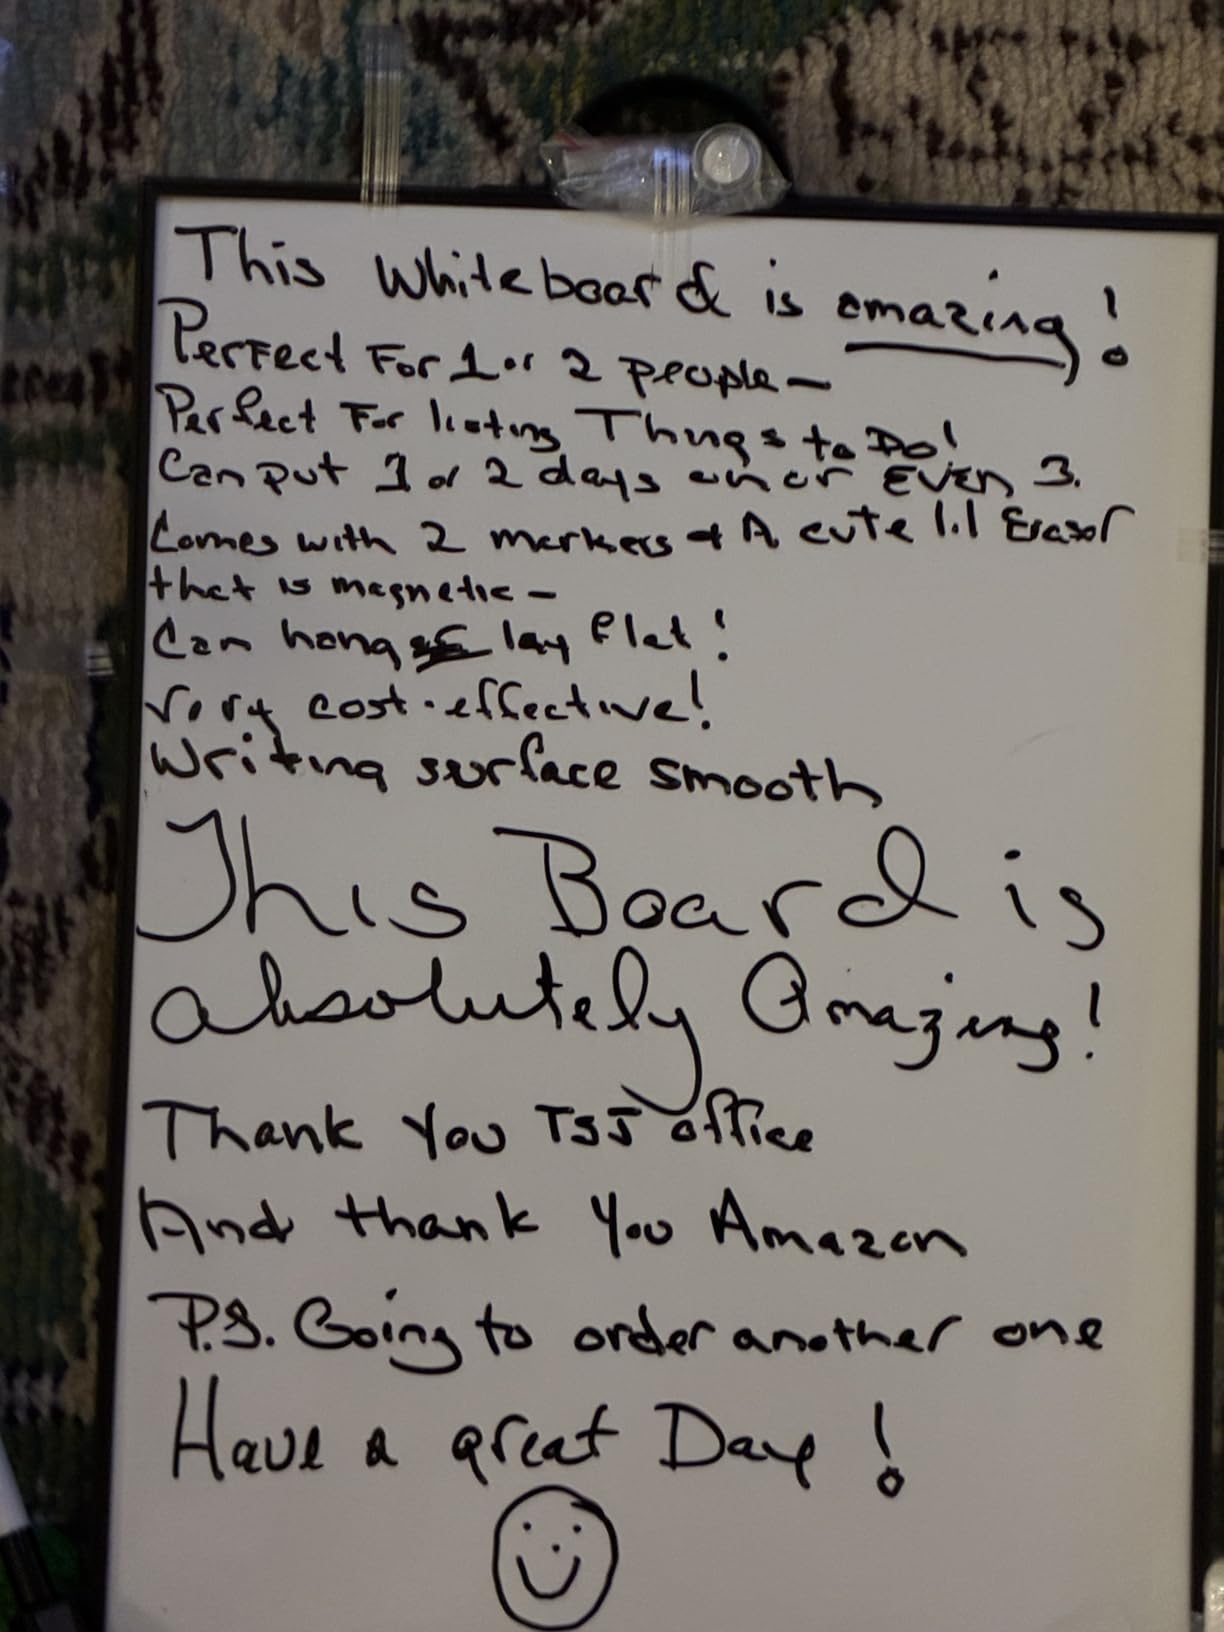 This Whiteboard is amazing!
Perfect For 1 or 2 people—
Perfect For listing Things to Do!
Can put 1 or 2 days or Even 3.
Comes with 2 markers + A cute lil Erasor
that is magnetic—
Can hang lay flat!
Very cost-effective!
Writing surface smooth
This Board is
absolutely Amazing!
Thank You TSJ office
And thank You Amazon
P.S. Going to order another one
Have a great Day!